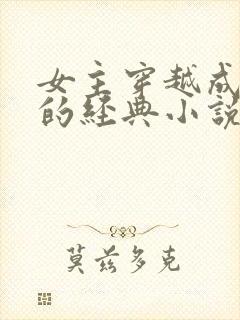 女主穿越成
的经典小说
莫兹多克